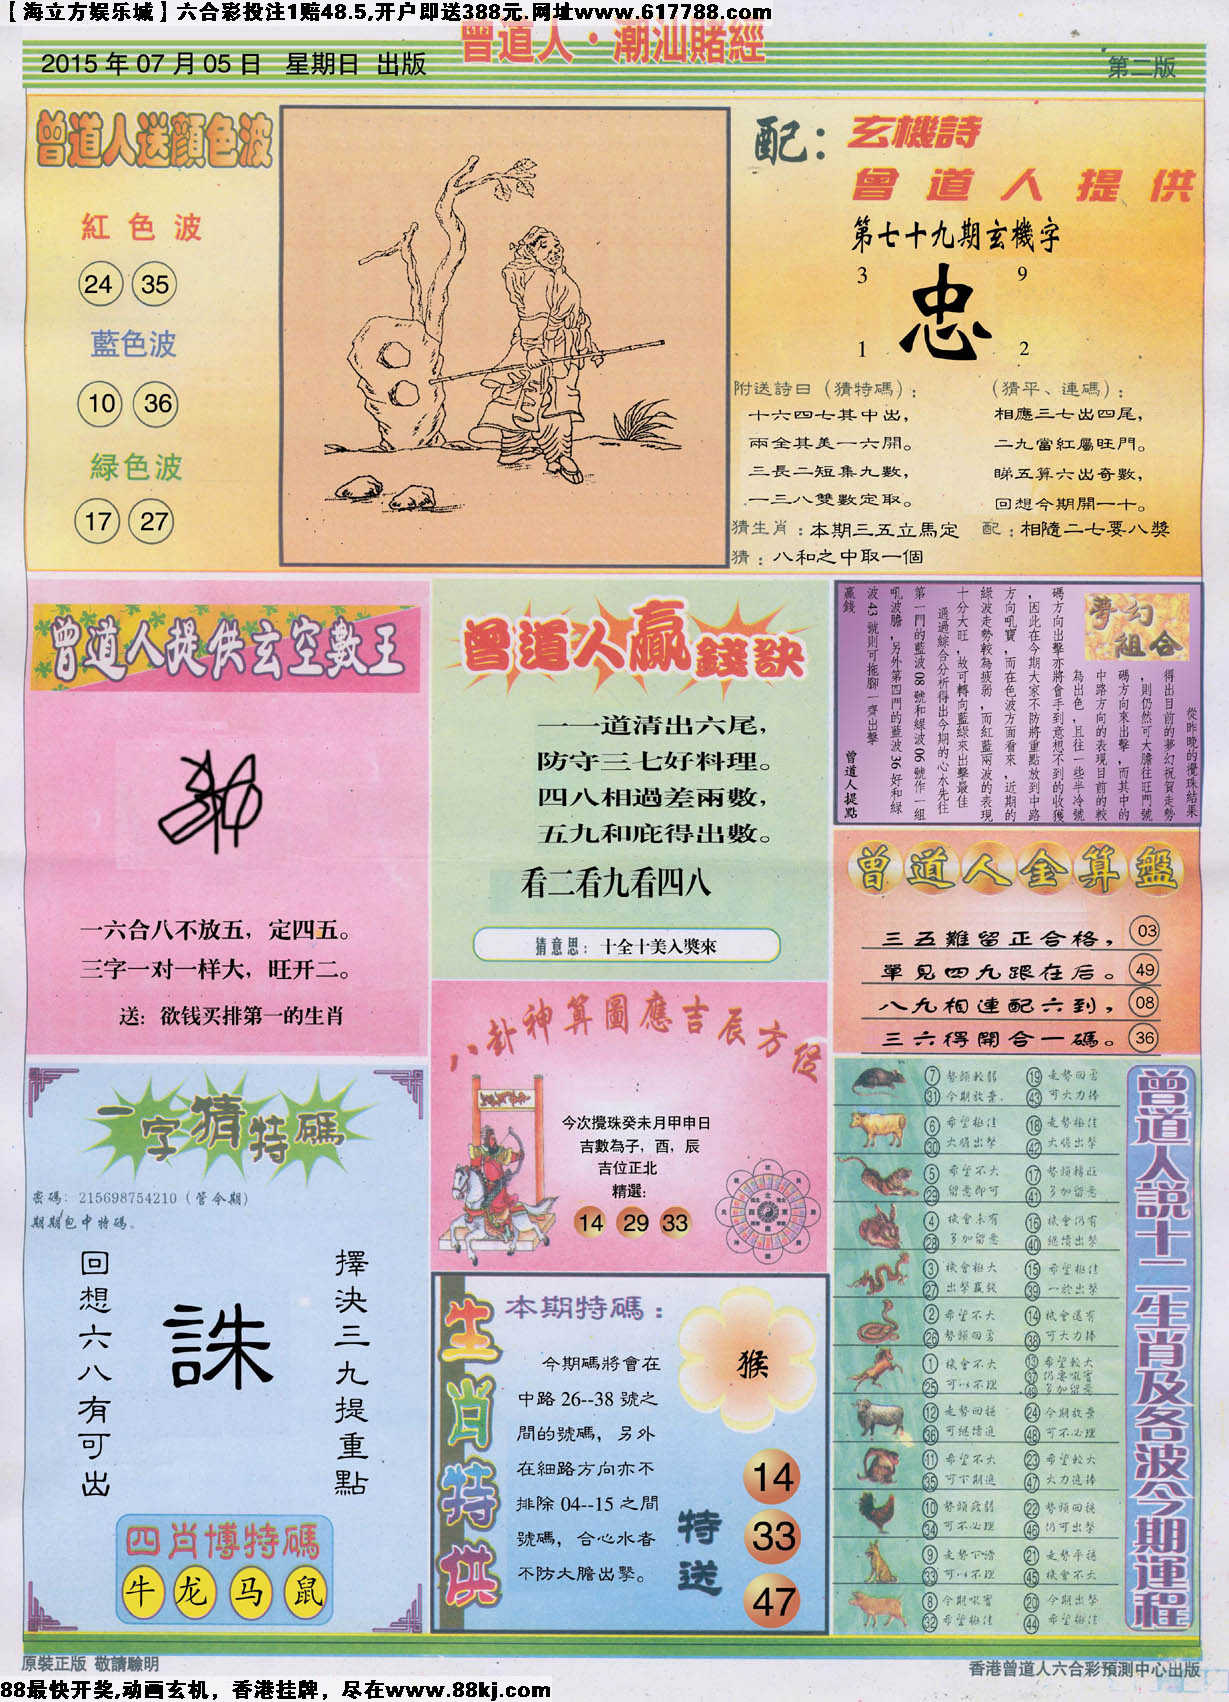 【海立方娱乐城】六合彩投注1赔48.5,开户即送388元.网址www.617788.com
曾道人·潮汕賭經
2015年07月05日 星期日 出版
第二版
曾道人送顔色波
紅色波
24 35
藍色波
10 36
緑色波
17 27
配：玄機詩
曾道人提供
第七十九期玄機字
3 9
忠
1 2
附送詩曰（猜特碼）：
十六四七其中出，
兩全其美一六開。
三長二短集九數，
一三八雙數定取。
（猜平、連碼）：
相應三七出四尾，
二九當紅屬旺門。
睇五算六出奇數，
回想今期開一十。
猜生肖：本期三五立馬定
配：相隨二七要八獎
猜：八和之中取一個
曾道人提供玄空數王
一六合八不放五，定四五。
三字一对一样大，旺开二。
送：欲钱买排第一的生肖
曾道人贏錢訣
一一道清出六尾，
防守三七好料理。
四八相過差兩數，
五九和庇得出數。
看二看九看四八
猜意思：十全十美入獎來
夢幻組合
從昨晚的攪珠結果
得出目前的夢幻祝賀走勢
，則仍然可大膽往旺門號
碼方向來出擊，而其中的
中路方向的表現目前的較
為出色，且往一些半冷號
碼方向出擊亦將會手到意想不到的收獲
，因此在今期大家不防將重點放到中路
方向吼寶，而在色波方面看來，近期的
綠波走勢較為疲弱，而紅藍兩波的表現
十分大旺，故可轉向藍綠來出擊最佳
通過綜合分析得出今期的心水先往
第一門的藍波08號和綠波06號作一組
吼波膽，另外第四門的藍波36好和綠
波43號則可拖腳一齊出擊
贏錢
曾道人提點
曾道人金算盤
三五難留正合格，03
單見四九跟在后。49
八九相連配六到，08
三六得開合一碼。36
一字猜特碼
密碼：215698754210（管令期）
期期包中特碼。
擇決三九提重點
誅
回想六八有可出
四肖博特碼
牛 龙 马 鼠
八卦神算圖應吉辰方位
今次攪珠癸未月甲申日
吉數為子，酉，辰
吉位正北
精選:
14 29 33
生肖特供
本期特碼：
今期碼將會在
中路26--38號之
間的號碼，另外
在細路方向亦不
排除04--15之間
號碼，合心水者
不防大膽出擊。
猴
特送
14
33
47
曾道人説十二生肖及各波今期運程
7 勢頭較弱 19 走勢回雲
31 今期放棄 43 可大力捧
6 希望極佳 18 走勢極佳
30 大膽出擊 42 大膽出擊
5 希望不大 17 勢頭轉旺
29 留意即可 41 多加留意
4 機會未有 16 機會仍有
28 多加留意 40 繼續出擊
3 機會極大 15 希望極佳
27 出擊贏錢 39 一於出擊
2 希望不大 14 機會還有
26 勢頭回勇 38 可大力捧
1 機會不大 13 希望較大
25 可以不理 37 仍要吼實
49 多加留意
12 走勢回穩 24 今期放棄
36 可繼續追 48 可不必理
11 希望不大 23 希望較大
35 可下期追 47 大力追捧
10 勢頭疲弱 22 勢頭回穩
34 可不必理 46 仍可出擊
9 走勢下滑 21 走勢平穩
33 可以不理 45 機會不大
8 今期吼實 20 今期出擊
32 希望極佳 44 希望極佳
原裝正版 敬請驗明
香港曾道人六合彩預測中心出版
88最快开奖,动画玄机，香港挂牌，尽在www.88kj.com